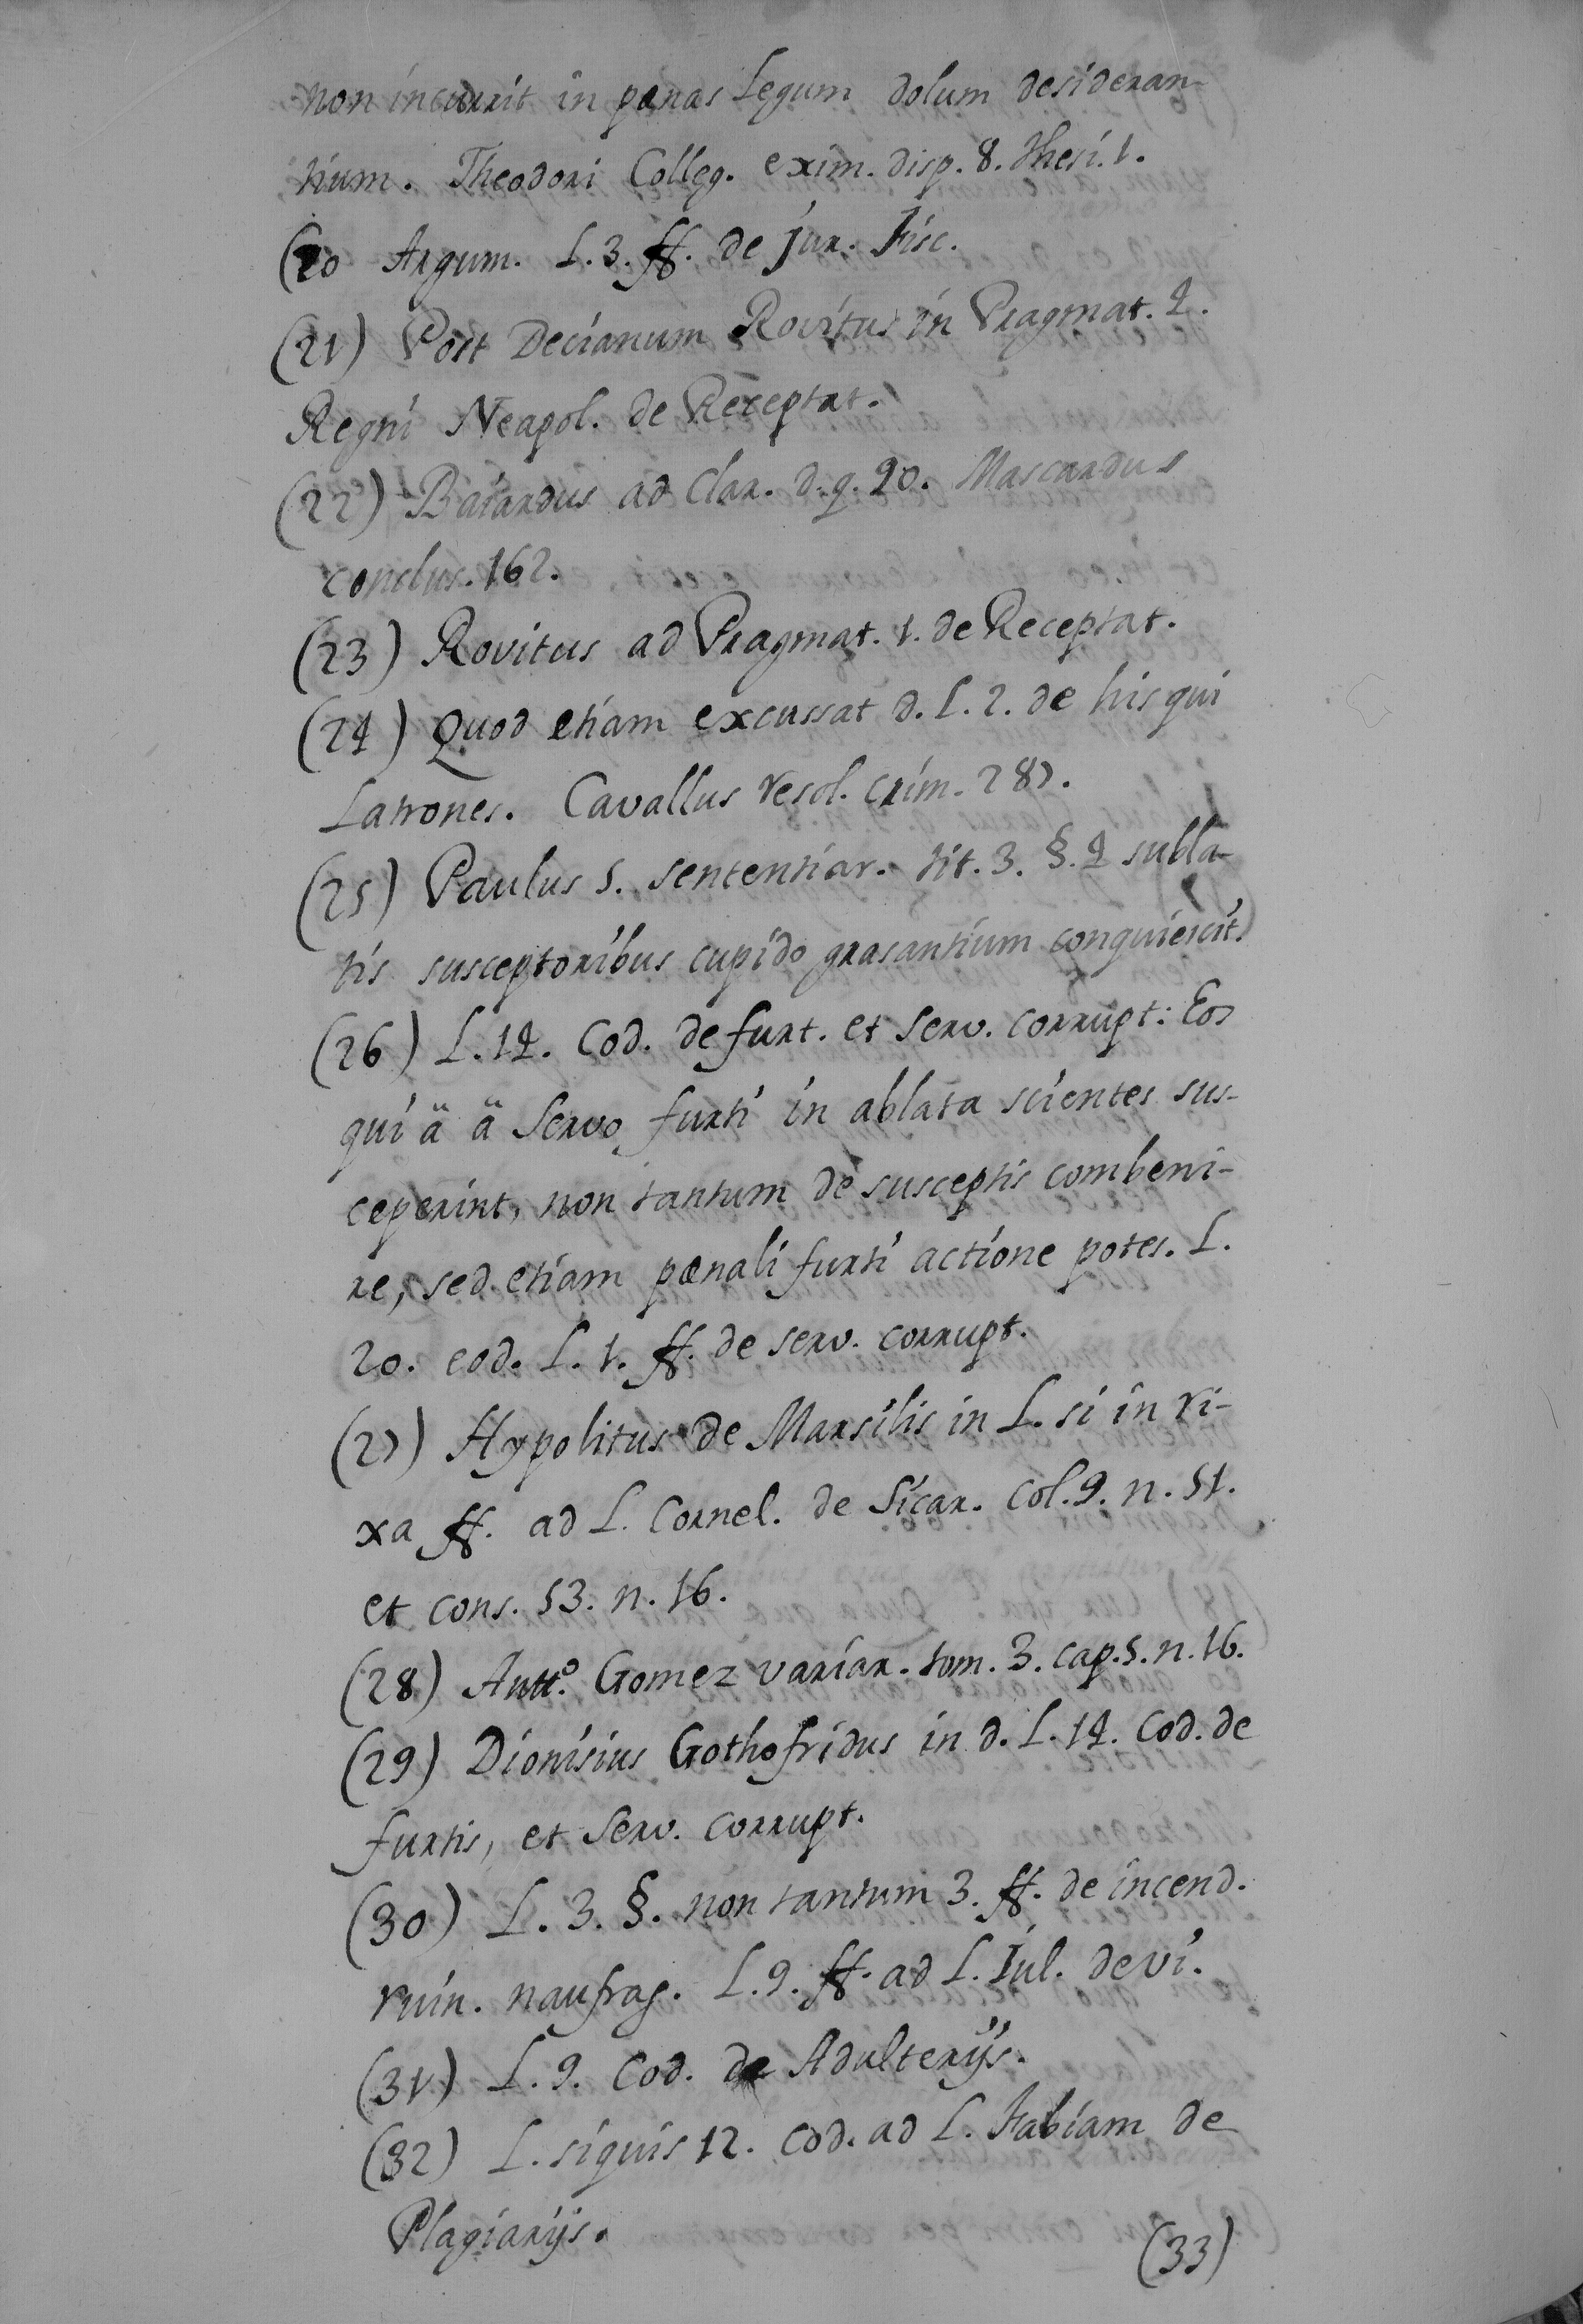 non incurrit in pænas Legum dolum desideran-
tium. Theodori Colleg. exim. disp. 8. thesi. 1.
(20 Argum. L. 3. ff. de jur. Fisc.
(21) Post Decianum Rovitus in Pragmat. 4.
Regni Neapol. de Receptat.
(22) Baiardus ad Clar. d. q. 90. Mascardus
conclus. 162.
(23) Rovitus ad Pragmat. 1. de Receptat.
(24) Quod etiam excussat d. L. 2. de his qui
Latrones. Cavallus resol. crim. 287.
(25) Paulus 5. sententiar. tit. 3. §. 4 subla-
tis susceptoribus cupido grasantium conquiescit.
(26) L. 14. Cod. de furt. et Serv. corrupt: Eos
qui ä ä Servo furti in ablata scientes sus-
ceperint, non tantum de susceptis combeni-
re, sed etiam pænali furti actione potes. L.
20. eod. L. 1. ff. de serv. corrupt.
(27) Hypolitus de Marsilis in L. si in ri-
xa ff. ad L. Cornel. de Sicar. Col. 9. n. 51.
et cons. 53. n. 16.
(28) Antt.º Gomez variar. tom. 3. cap. 5. n. 16.
(29) Dionisius Gothofridus in d. L. 14. Cod. de
furtis, et Serv. corrupt.
(30) L. 3. §. non tantum 3. ff. de incend.
ruin. naufrag. L. 9. ff. ad L. Iul. de vi.
(31) L. 9. Cod. de Adulterijs.
(32) L. siquis 12. Cod. ad L. Fabiam de
Plagiarijs.
(33)